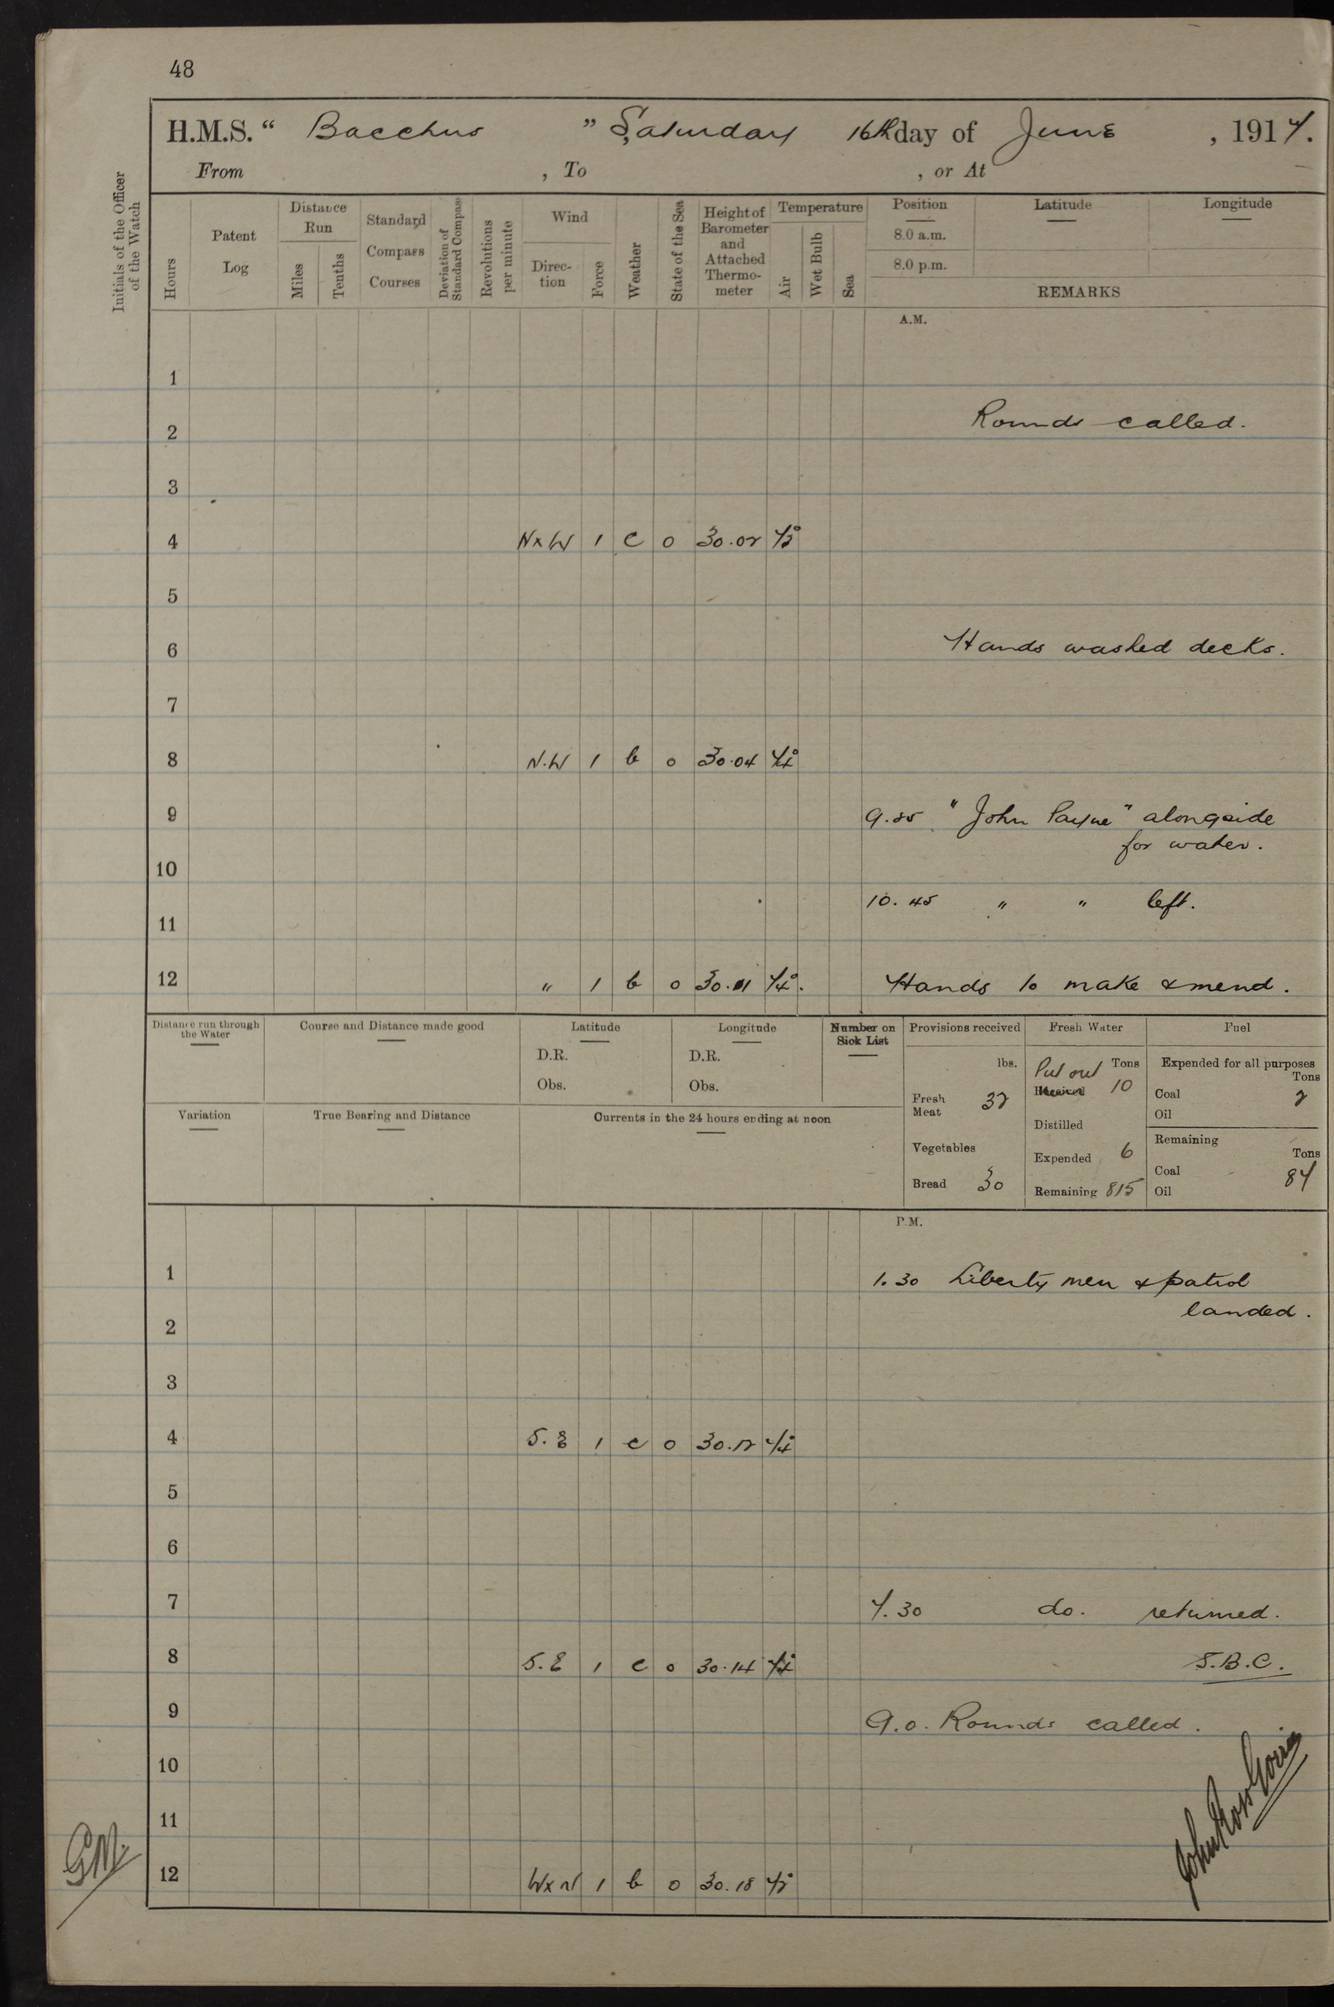 48
H.M.S. “ Bacchus ” Saturday 16th day of June , 1917.
From , To , or At
Initials of the Officer of the Watch
Hours
Patent Log
Distance Run
Miles
Tenths
Standard Compass Courses
Deviation of Standard Compass
Revolutions per minute
Wind
Direction
Force
Weather
State of the Sea
Height of Barometer and Attached Thermometer
Temperature
Air
Wet Bulb
Sea
Position
8.0 a.m.
8.0 p.m.
Latitude
Longitude
REMARKS
A.M.
1
2 Rounds called.
3
4 NxW 1 c 0 30.02 72°
5
6 Hands washed decks.
7
8 N.W 1 b 0 30.04 74°
9 9.25 "John Payne" alongside
for water.
10
10.45 " " left.
11
12 " 1 b 0 30.11 74°. Hands to make & mend.
Distance run through the Water
Course and Distance made good
Latitude
D.R.
Obs.
Longitude
D.R.
Obs.
Number on Sick List
Provisions received
lbs.
Fresh Meat 32
Vegetables
Bread 30
Fresh Water
Put out Tons
Received 10
Distilled
Expended 6
Remaining 815
Fuel
Expended for all purposes
Tons
Coal 2
Oil
Remaining
Tons
Coal 87
Oil
Variation
True Bearing and Distance
Currents in the 24 hours ending at noon
P.M.
1 1.30 Liberty men & patrol
landed.
2
3
4 S.E 1 c 0 30.12 74°
5
6
7 7.30 do. returned.
8 S.E 1 c 0 30.14 74° S.B.C.
9 9.0. Rounds called.
10
11
12 WxN 1 b 0 30.18 72°
GM